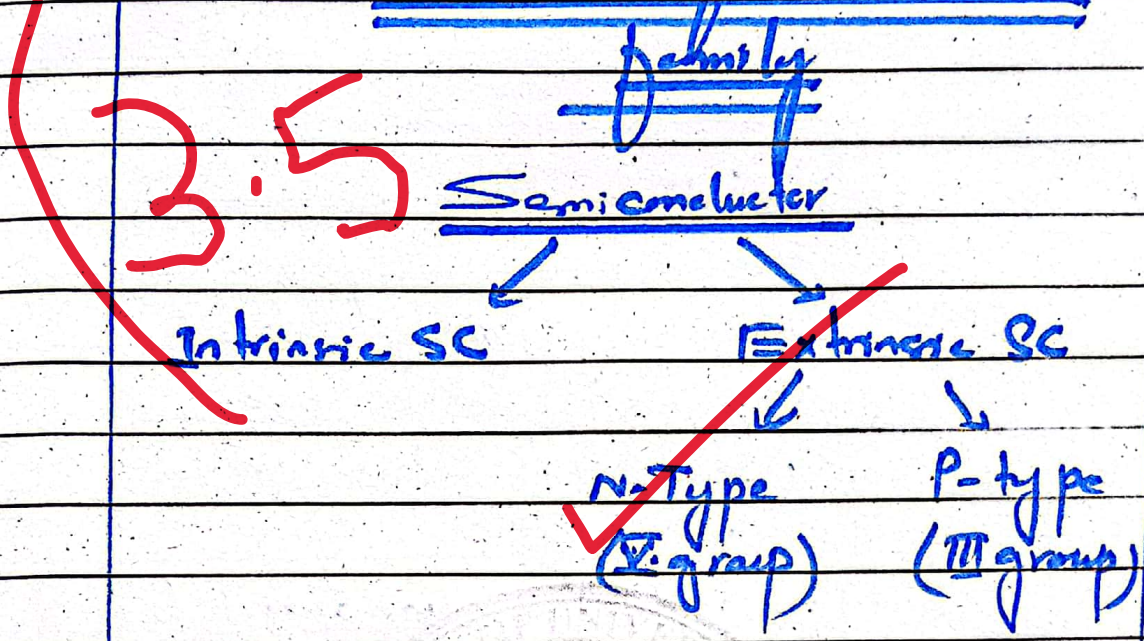 family
3.5
Semiconductor
Intrinsic SC Extrinsic SC
N-Type P-type
(V.group) (III group)